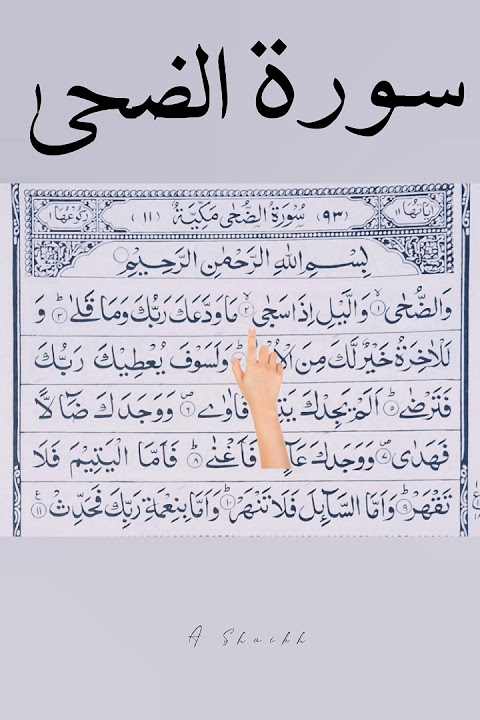 سورة الضحى
اٰيَاتُهَا ١١ (٩٣) سُوْرَةُ الضُّحٰى مَكِّيَّةٌ (١١) رُكُوْعُهَا ١
بِسْمِ اللّٰهِ الرَّحْمٰنِ الرَّحِيْمِ
وَالضُّحٰى ۙ﴿١﴾ وَالَّيْلِ اِذَا سَجٰى ۙ﴿٢﴾ مَا وَدَّعَكَ رَبُّكَ وَمَا قَلٰى ؕ﴿٣﴾ وَ
لَلْاٰخِرَةُ خَيْرٌ لَّكَ مِنَ وَلَسَوْفَ يُعْطِيْكَ رَبُّكَ
فَتَرْضٰى ؕ﴿٥﴾ اَلَمْ يَجِدْكَ فَاٰوٰى ۪﴿٦﴾ وَوَجَدَكَ ضَآلًّا
فَهَدٰى ۪﴿٧﴾ وَوَجَدَكَ فَاَغْنٰى ؕ﴿٨﴾ فَاَمَّا الْيَتِيْمَ فَلَا
تَقْهَرْ ؕ﴿٩﴾ وَاَمَّا السَّآئِلَ فَلَا تَنْهَرْ ؕ﴿١٠﴾ وَاَمَّا بِنِعْمَةِ رَبِّكَ فَحَدِّثْ ﴿١١﴾
A Shaikh